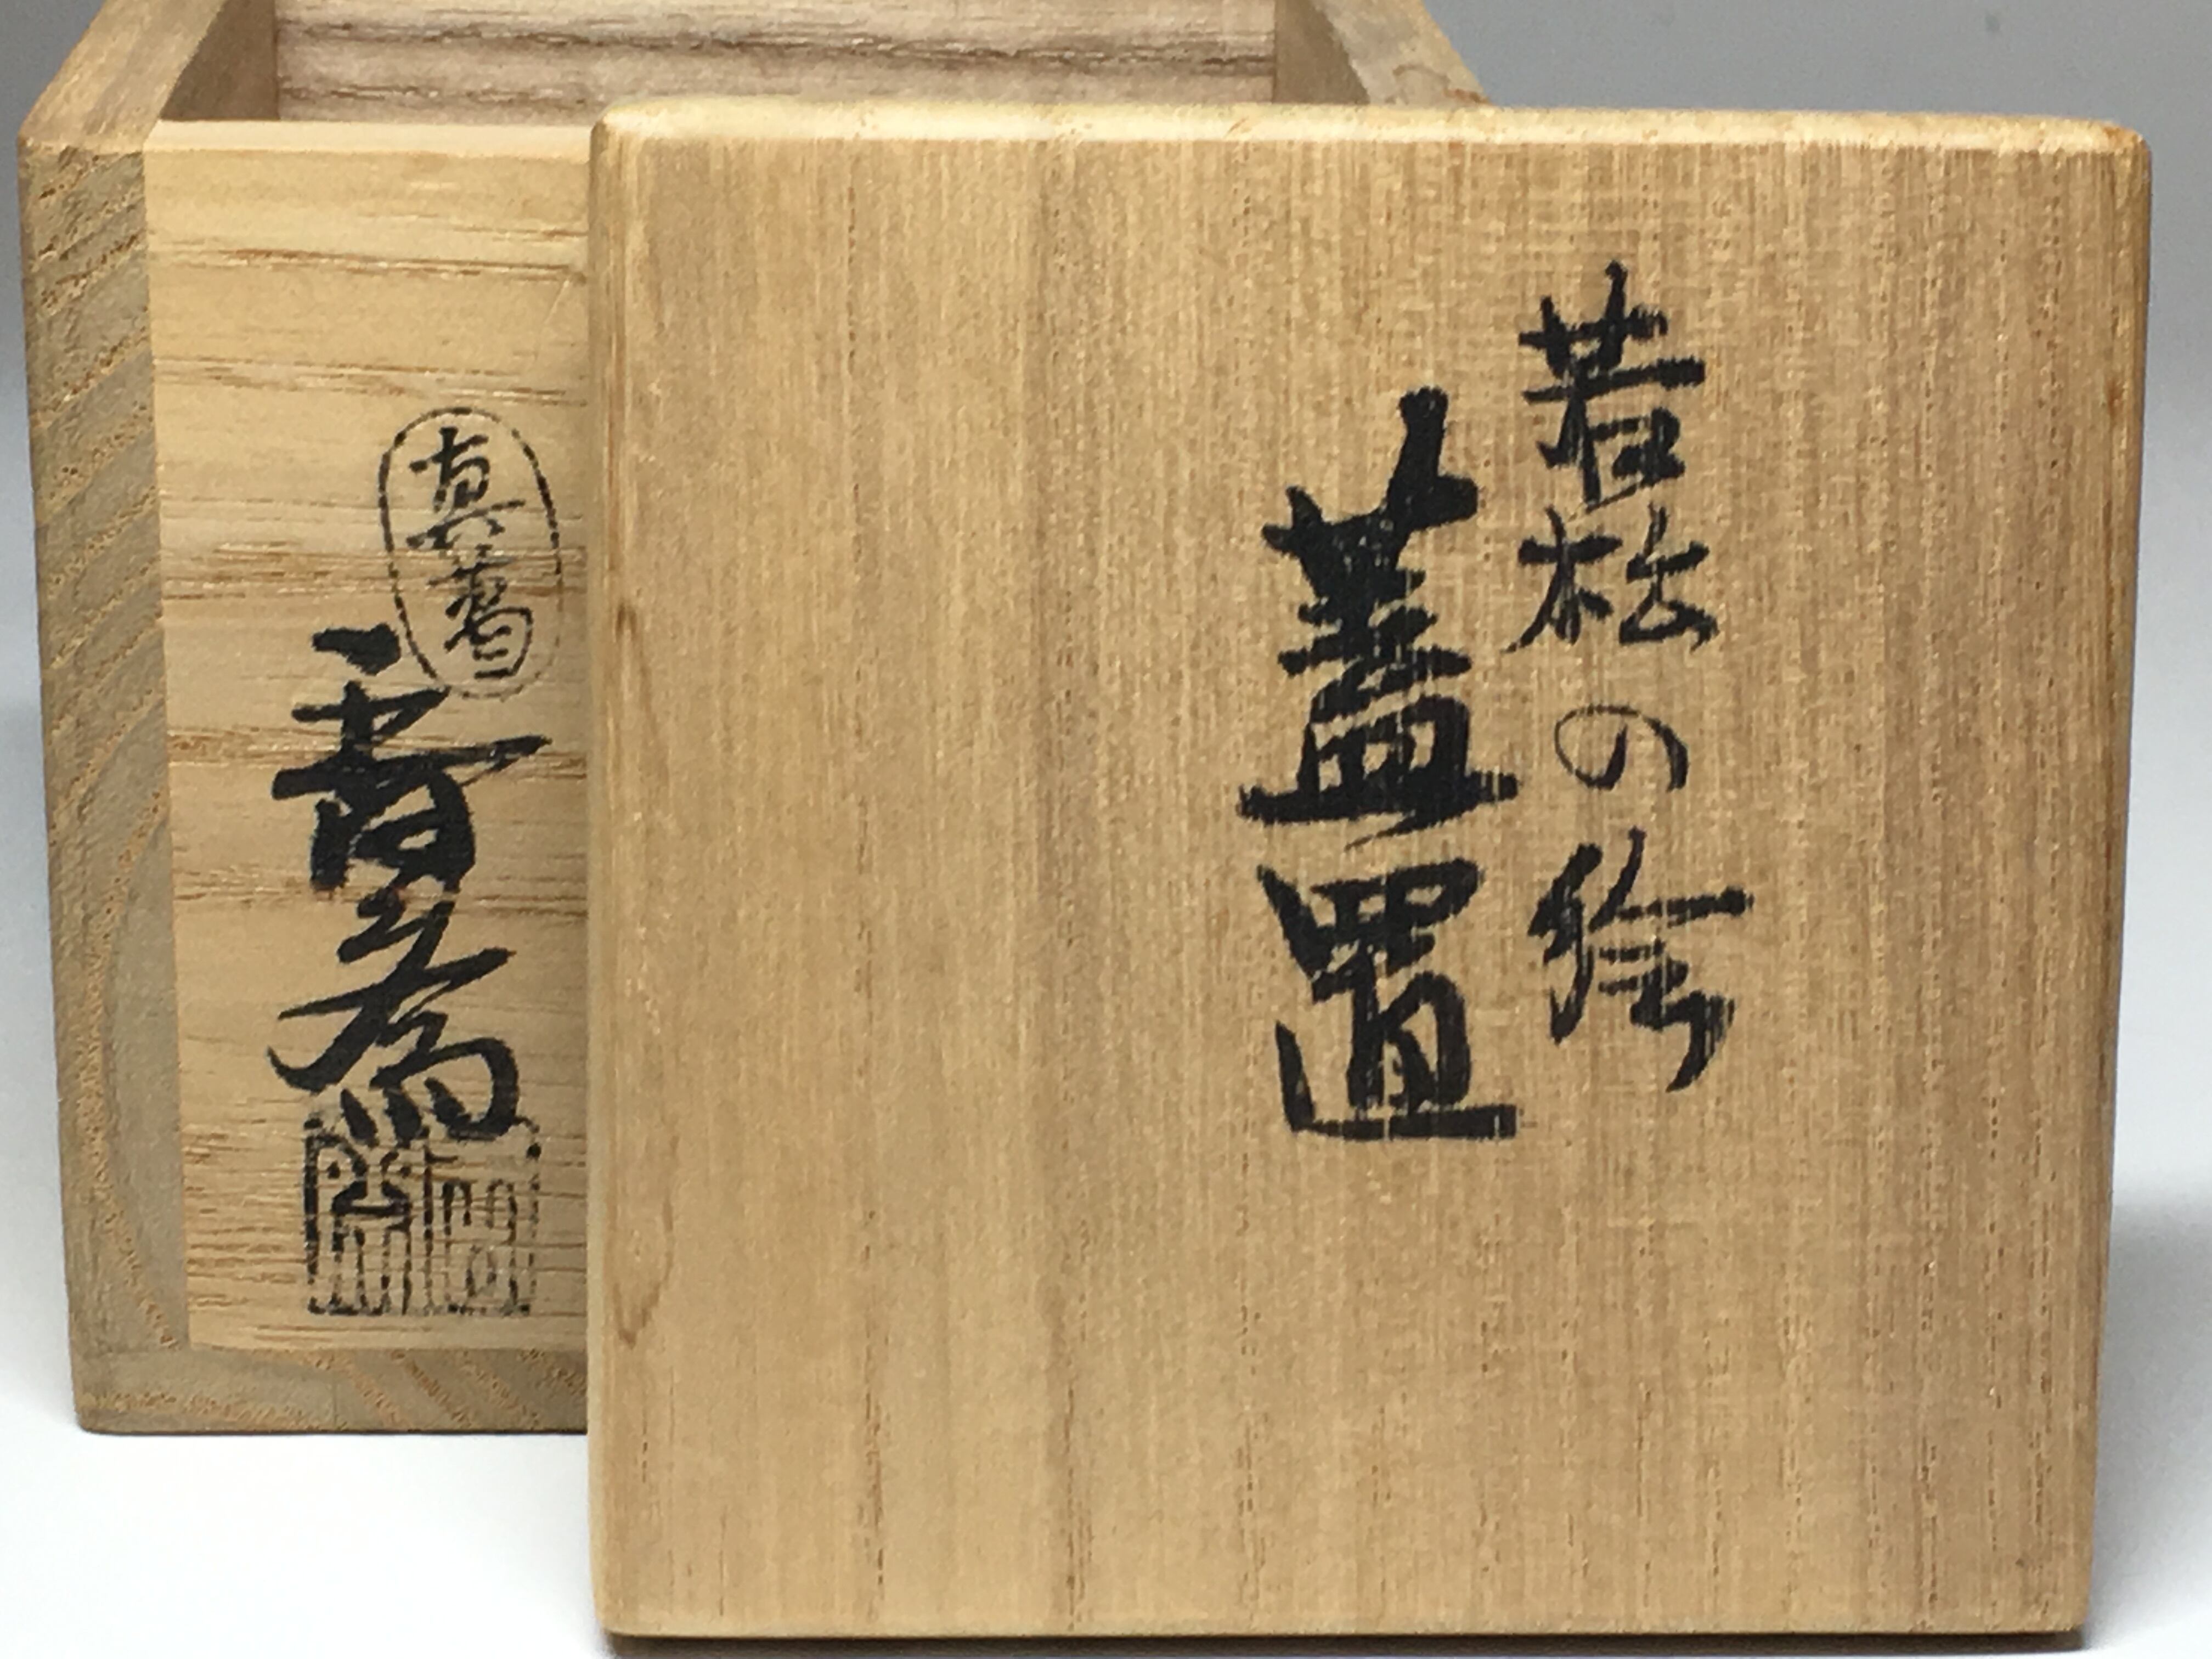 若松の絵
蓋置
真葛
香斎